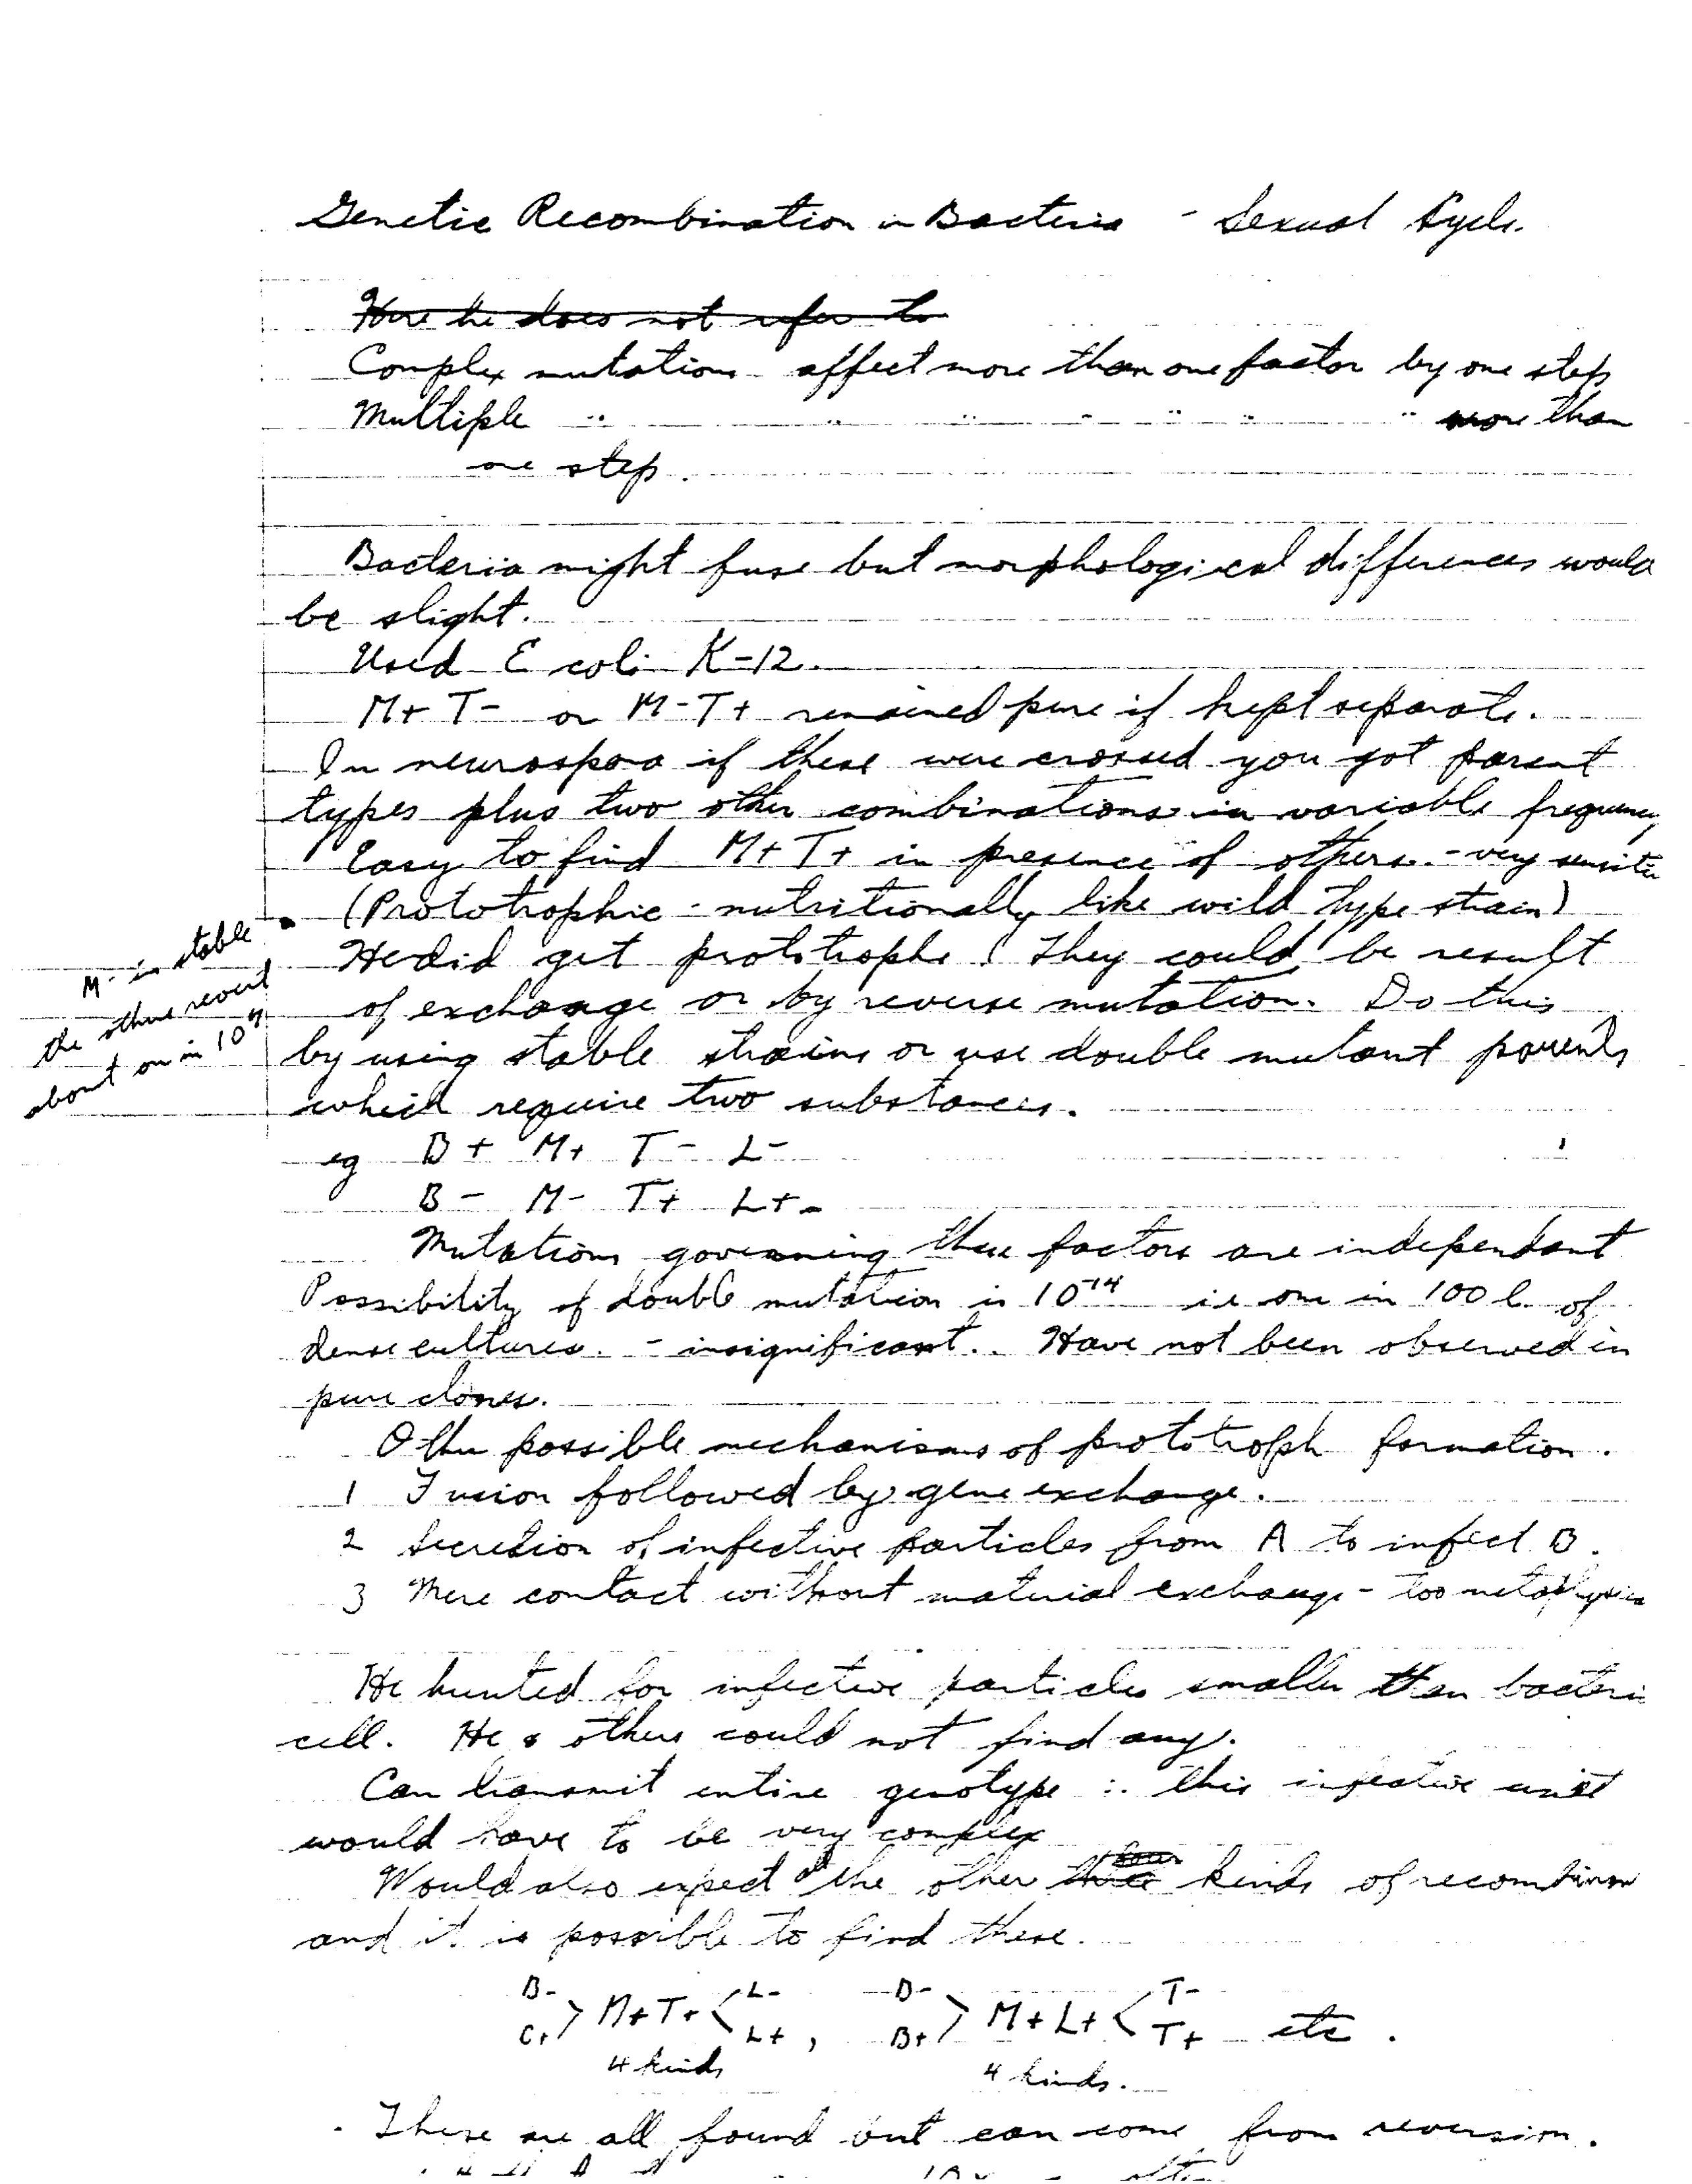 Genetic Recombination in Bacteria - Sexual Cycle.
Here he does not refer to
Complex mutations affect more than one factor by one step
Multiple " " " " " " " more than
one step.
Bacteria might fuse but morphological differences would
be slight.
Used E coli K-12.
M+ T- or M-T+ remained pure if kept separate.
In neurospora if these were crossed you got parent
types plus two other combinations in variable frequency
Easy to find M+T+ in presence of others. - very sensitiv
(Prototrophic - nutritionally like wild type strain)
He did get prototrophs! They could be result
of exchange or by reverse mutation. Do this
by using stable strains or use double mutant parents
which require two substances.
M- is stable
the others revert
about on in 10
eg B+ M+ T- L-
B- M- T+ L+
Mutations governing these factors are independant
Possibility of double mutation is 10-14 ie one in 100 l. of
dense cultures. - insignificant. Have not been observed in
pure clones.
Other possible mechanisms of prototroph formation.
1 Fusion followed by gene exchange.
2 Secretion of infective particles from A to infect B.
3 Mere contact without material exchange - too metaphysica
He hunted for infective particles smaller than bacteri
cell. He & others could not find any.
Can transmit entire genotype ∴ this infective unit
would have to be very complex
Would also expect the other kinds of recombination
and it is possible to find these.
B- L- B- T-
> M+T+ < , > M+L+ < etc.
C+ L+ B+ T+
4 kinds 4 kinds.
These are all found but can come from reversion.